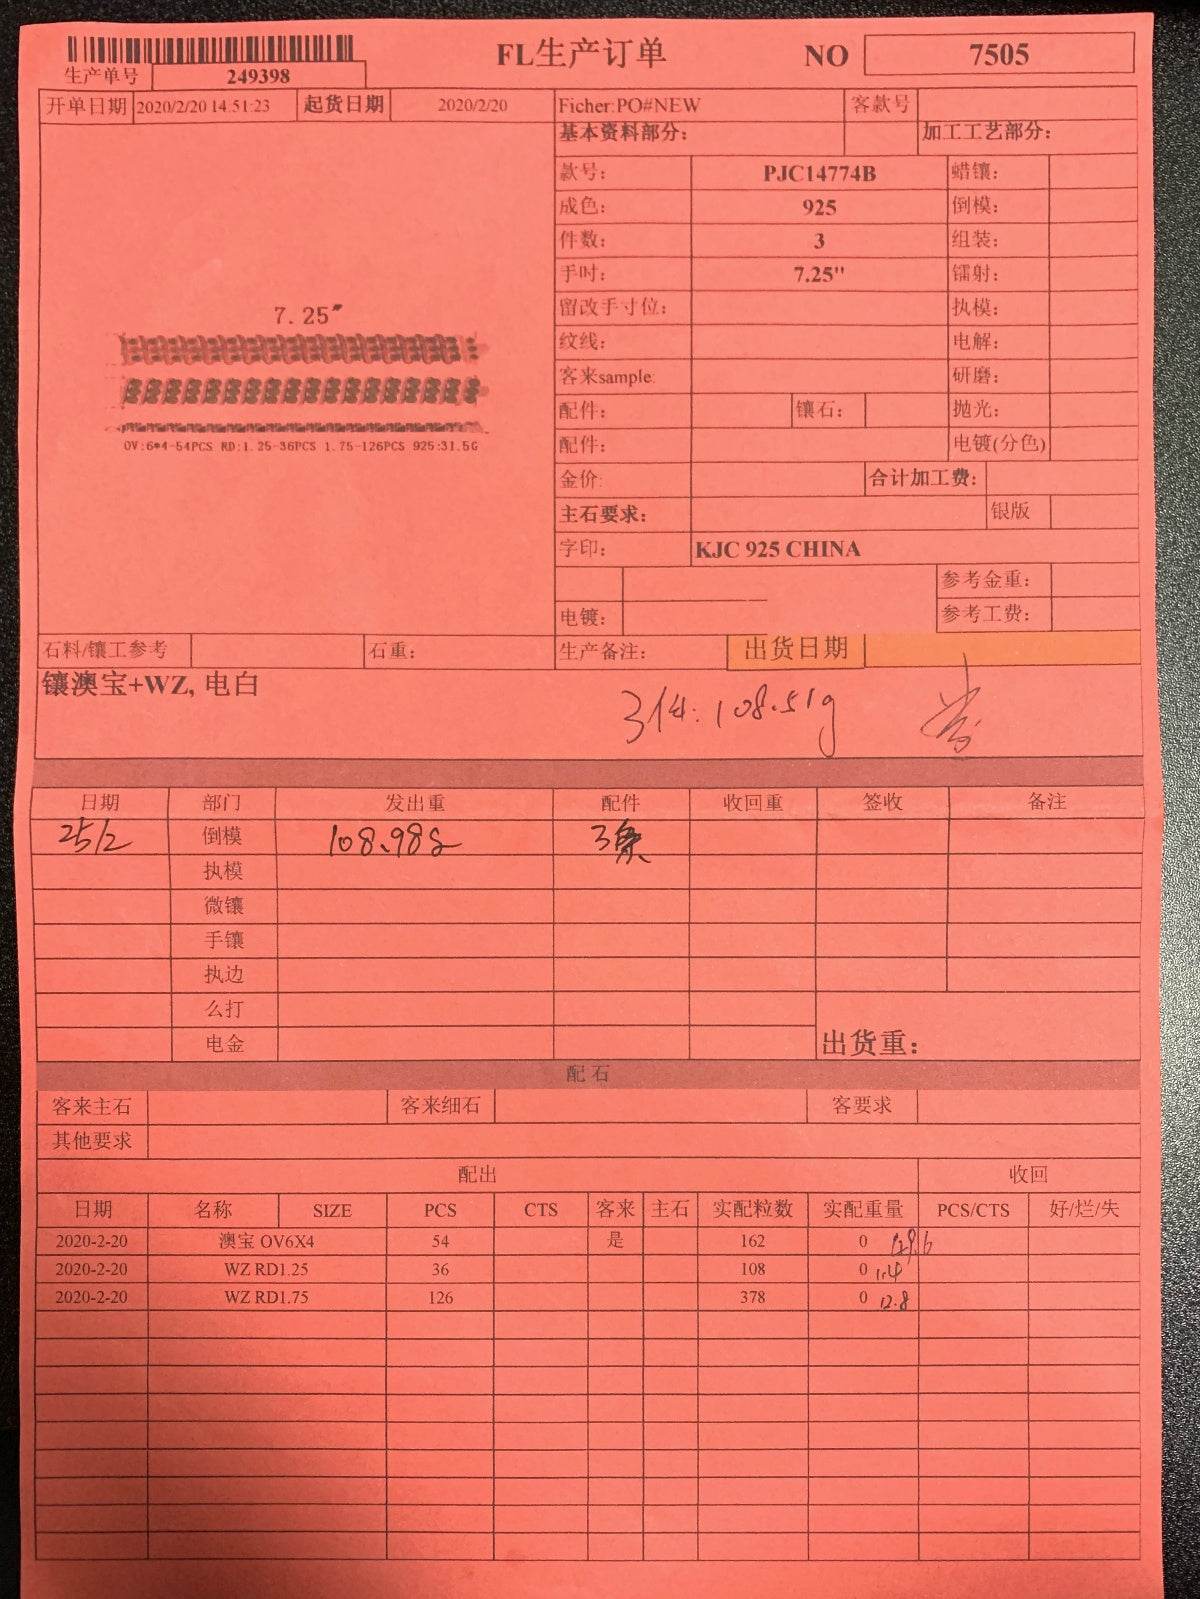 FL生产订单 NO 7505
生产单号 249398
开单日期 2020/2/20 14:51:23 起货日期 2020/2/20 Ficher:PO#NEW 客款号
基本资料部分: 加工工艺部分:
款号: PJC14774B 蜡镶:
成色: 925 倒模:
件数: 3 组装:
手吋: 7.25" 镭射:
留改手寸位: 执模:
纹线: 电解:
客来sample: 研磨:
配件: 镶石: 抛光:
配件: 电镀(分色)
金价: 合计加工费:
主石要求: 银版
字印: KJC 925 CHINA
参考金重:
电镀: 参考工费:
7.25"
OV:6*4-54PCS RD:1.25-36PCS 1.75-126PCS 925:31.5G
石料/镶工参考 石重: 生产备注: 出货日期
镶澳宝+WZ, 电白
3件: 108.51g
日期 部门 发出重 配件 收回重 签收 备注
25/2 倒模 108.98g 3条
执模
微镶
手镶
执边
么打
电金
出货重:
配石
客来主石 客来细石 客要求
其他要求
配出 收回
日期 名称 SIZE PCS CTS 客来 主石 实配粒数 实配重量 PCS/CTS 好/烂/失
2020-2-20 澳宝 OV6X4 54 是 162 0 129.6
2020-2-20 WZ RD1.25 36 108 0 1.4
2020-2-20 WZ RD1.75 126 378 0 12.8